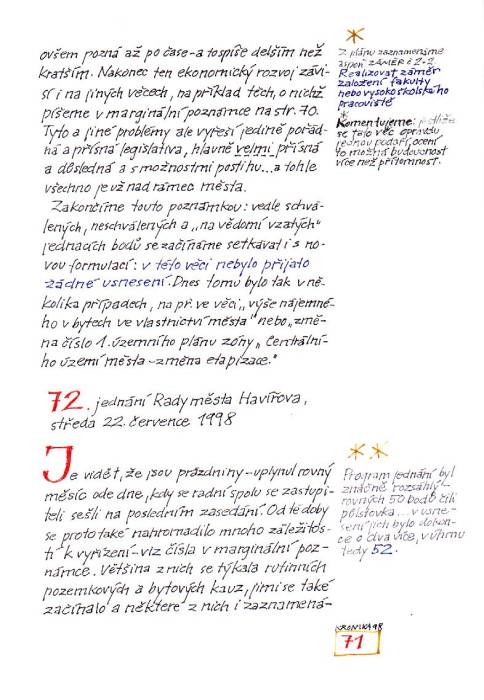 ovšem pozná až po čase - a to spíše delším než
kratším. Nakonec ten ekonomický rozvoj závi-
sí i na jiných věcech, na příklad těch, o nichž
píšeme v marginální poznámce na str. 70.
Tyto a jiné problémy ale vyřeší jedině pořád-
ná a přísná legislativa, hlavně velmi přísná
a důsledná a s možnostmi postihu... a tohle
všechno je už nad rámec města.
Zakončíme touto poznámkou: vedle schvá-
lených, neschválených a „na vědomí vzatých"
jednacích bodů se začínáme setkávat i s no-
vou formulací: v této věci nebylo přijato
žádné usnesení. Dnes tomu bylo tak v ně-
kolika případech, na př. ve věci „výše nájemné-
ho v bytech ve vlastnictví města" nebo „změ-
na číslo 1. územního plánu zóny „Centrální-
ho území města - změna etapizace."
*
Z plánu zaznamenáme
aspoň ZÁMĚR č 2.2.
Realizovat záměr
založení fakulty
nebo vysokoškolského
pracoviště
*
Komentujeme: jestliže
se tato věc opravdu
jednou podaří, ocení
to možná budoucnost
více než přítomnost.
72. jednání Rady města Havířova,
středa 22. července 1998
Je vidět, že jsou prázdniny - uplynul rovný
měsíc ode dne, kdy se radní spolu se zastupi-
teli sešli na posledním zasedání. Od té doby
se proto také nahromadilo mnoho záležitos-
tí k vyřízení - viz čísla v marginální poz-
námce. Většina z nich se týkala rutinních
pozemkových a bytových kauz, jimi se také
začínalo a některé z nich i zaznamená-
* *
Program jednání byl
značně rozsáhlý -
rovných 50 bodů čili
půlstovka... v usne-
sení jich bylo dokon-
ce o dva více, v úhrnu
tedy 52.
KRONIKA 98
71